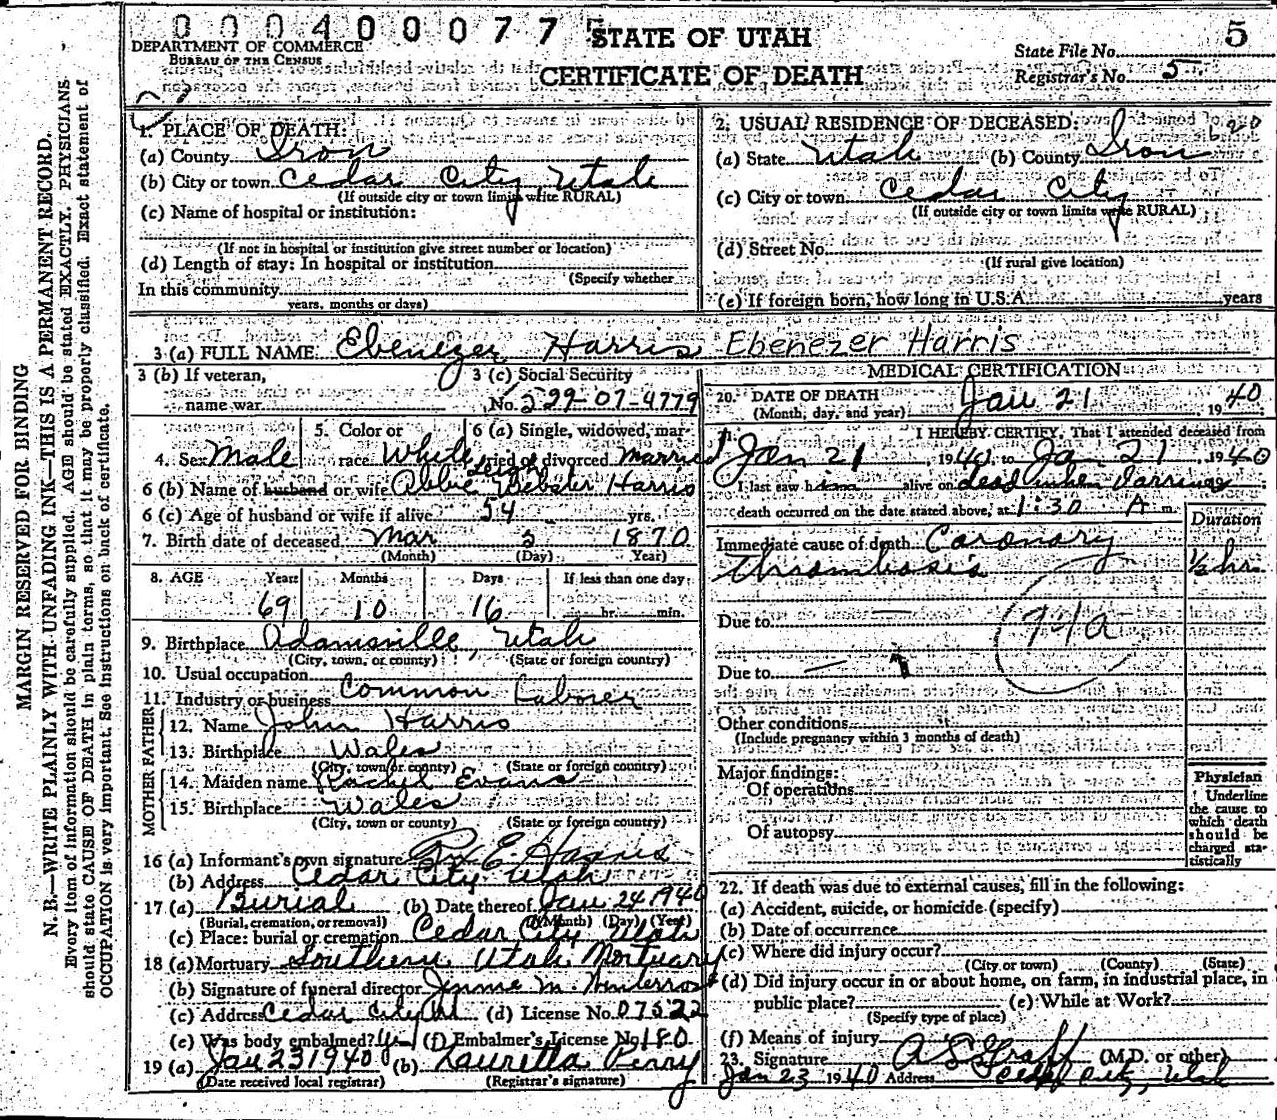 0 0 0 4 0 0 0 7 7
STATE OF UTAH
5
DEPARTMENT OF COMMERCE
BUREAU OF THE CENSUS
CERTIFICATE OF DEATH
State File No.
Registrar's No. 5
MARGIN RESERVED FOR BINDING
N. B.—WRITE PLAINLY WITH UNFADING INK—THIS IS A PERMANENT RECORD.
Every item of information should be carefully supplied. AGE should be stated EXACTLY. PHYSICIANS
should state CAUSE OF DEATH in plain terms, so that it may be properly classified. Exact statement of
OCCUPATION is very important. See instructions on back of certificate.
1. PLACE OF DEATH:
(a) County Iron
(b) City or town Cedar City, Utah
(If outside city or town limits write RURAL)
(c) Name of hospital or institution:
(If not in hospital or institution give street number or location)
(d) Length of stay: In hospital or institution
(Specify whether
In this community
years, months or days)
2. USUAL RESIDENCE OF DECEASED:
(a) State Utah (b) County Iron
(c) City or town Cedar City
(If outside city or town limits write RURAL)
(d) Street No.
(If rural give location)
(e) If foreign born, how long in U.S.A. years
3 (a) FULL NAME Ebenezer Harris Ebenezer Harris
3 (b) If veteran,
name war
3 (c) Social Security
No. 529-07-4779
4. Sex Male
5. Color or
race White
6 (a) Single, widowed, mar-
ried or divorced Married
6 (b) Name of husband or wife Abbie Leigh Webster Harris
6 (c) Age of husband or wife if alive 54 yrs.
7. Birth date of deceased Mar 5 1870
(Month) (Day) Year)
8. AGE Years Months Days If less than one day
69 10 16 hr. min.
9. Birthplace Adamsville, Utah
(City, town, or county) (State or foreign country)
10. Usual occupation
11. Industry or business Common Laborer
FATHER
12. Name John Harris
13. Birthplace Wales
(City, town or county) (State or foreign country)
MOTHER
14. Maiden name Rachel Evans
15. Birthplace Wales
(City, town or county) (State or foreign country)
16 (a) Informant's own signature E Harris
(b) Address Cedar City Utah
17 (a) Burial (b) Date thereof Jan 24 1940
(Burial, cremation, or removal) (Month) (Day) (Year)
(c) Place: burial or cremation Cedar City Utah
18 (a) Mortuary Southern Utah Mortuary
(b) Signature of funeral director
(c) Address Cedar City Ut (d) License No. 07522
(e) Was body embalmed? Yes (f) Embalmer's License No. 180
19 (a) Jan 23 1940 (b) Lauretta Perry
(Date received local registrar) (Registrar's signature)
MEDICAL CERTIFICATION
20. DATE OF DEATH Jan 21, 1940
(Month, day, and year)
I HEREBY CERTIFY, That I attended deceased from
Jan 21, 1940 to Jan 21, 1940
I last saw him alive on dead when
death occurred on the date stated above, at 1:30 A m.
Duration
Immediate cause of death Coronary
Thrombosis ½ hr.
Due to
94a
Due to
Other conditions
(Include pregnancy within 3 months of death)
Major findings:
Of operations
Of autopsy
Physician
Underline
the cause to
which death
should be
charged sta-
tistically
22. If death was due to external causes, fill in the following:
(a) Accident, suicide, or homicide (specify)
(b) Date of occurrence
(c) Where did injury occur?
(City or town) (County) (State)
(d) Did injury occur in or about home, on farm, in industrial place, in
public place? (e) While at Work?
(Specify type of place)
(f) Means of injury
23. Signature A L Graff (M.D. or other)
Jan 23 1940 Address Cedar City, Utah